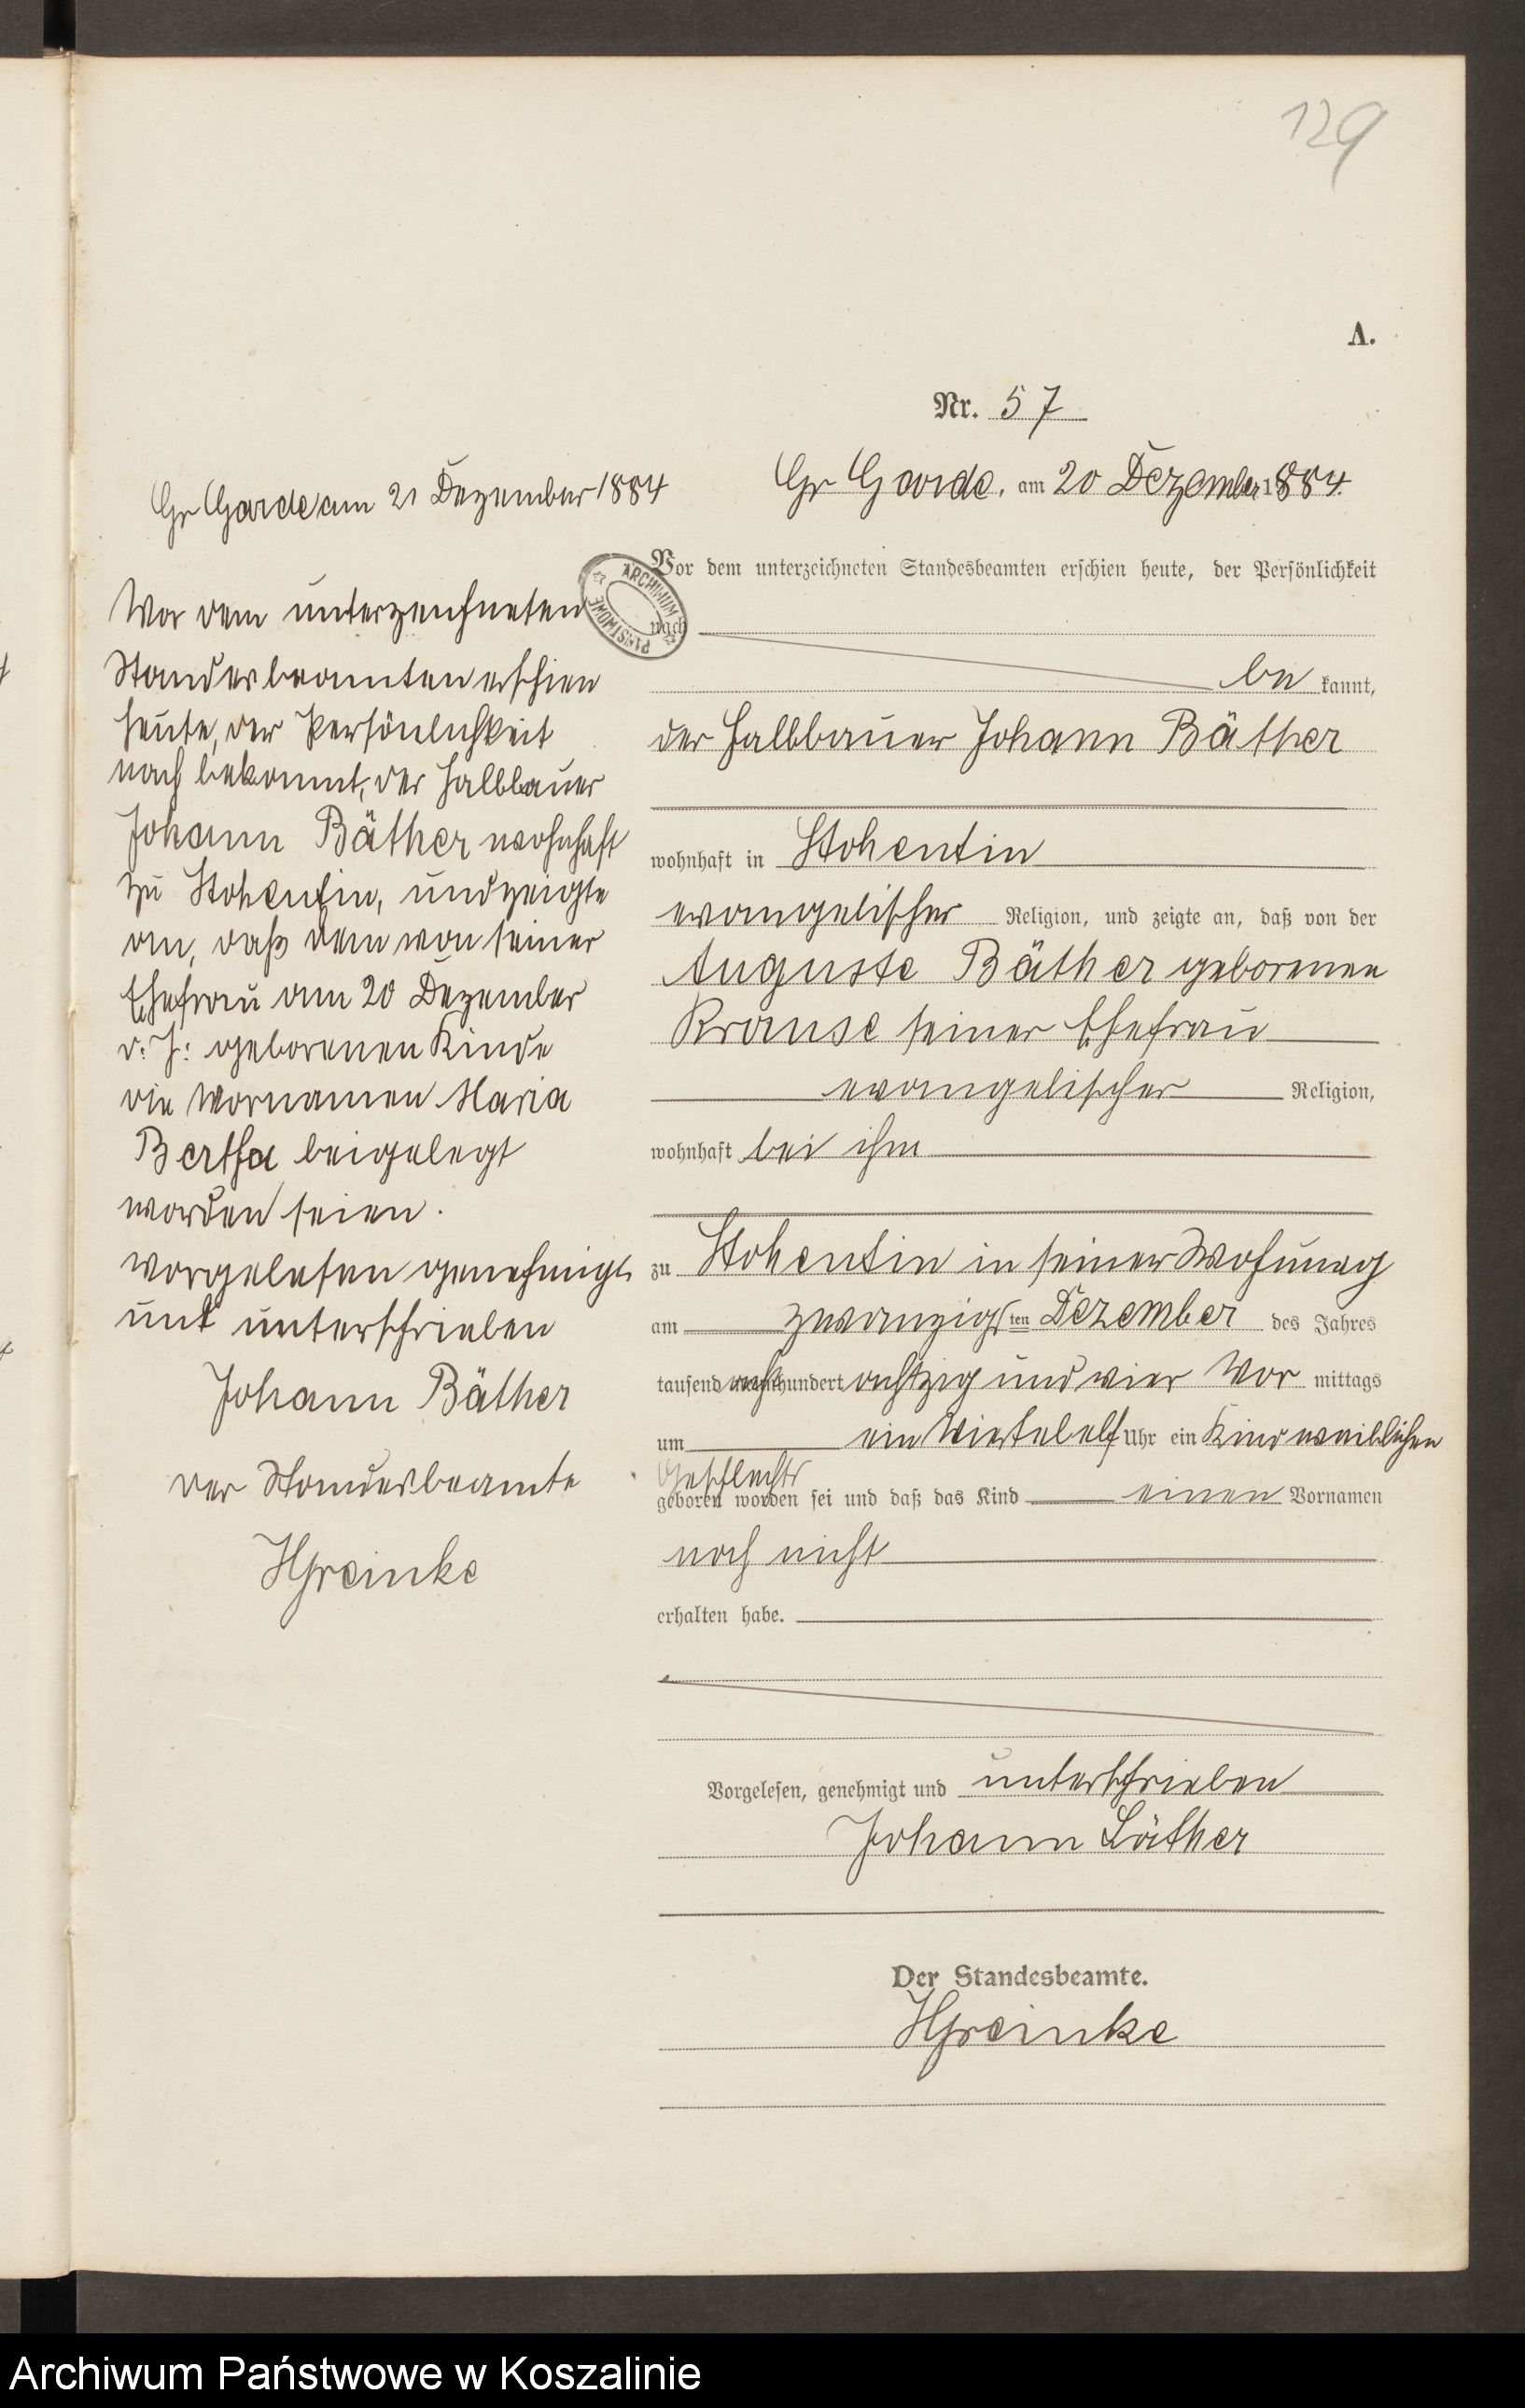 129
A.
Nr. 57
Gr Garde, am 20 Dezember 1884.
Vor dem unterzeichneten Standesbeamten erschien heute, der Persönlichkeit
nach
be kannt,
der Halbbauer Johann Bäther
wohnhaft in Stohentin
evangelischer Religion, und zeigte an, daß von der
Auguste Bäther geborenen
Krause seiner Ehefrau
evangelischer Religion,
wohnhaft bei ihm
zu Stohentin in seiner Wohnung
am zwanzigsten Dezember des Jahres
tausend acht hundert achtzig und vier Vor mittags
um ein Viertel elf Uhr ein Kind weiblichen
Geschlechts
geboren worden sei und daß das Kind einen Vornamen
noch nicht
erhalten habe.
Vorgelesen, genehmigt und unterschrieben
Johann Bäther
Der Standesbeamte.
HGreinke
Gr Garde am 21 Dezember 1884
Vor dem unterzeichneten
Standesbeamten erschien
heute, der Persönlichkeit
nach bekannt, der Halbbauer
Johann Bäther wohnhaft
zu Stohentin, und zeigte
an, daß dem von seiner
Ehefrau am 20 Dezember
d. J: geborenen Kinde
die Vornamen Maria
Bertha beigelegt
worden seien.
vorgelesen genehmigt
und unterschrieben
Johann Bäther
der Standesbeamte
HGreinke
ARCHIWUM PAŃSTWOWE
Archiwum Państwowe w Koszalinie